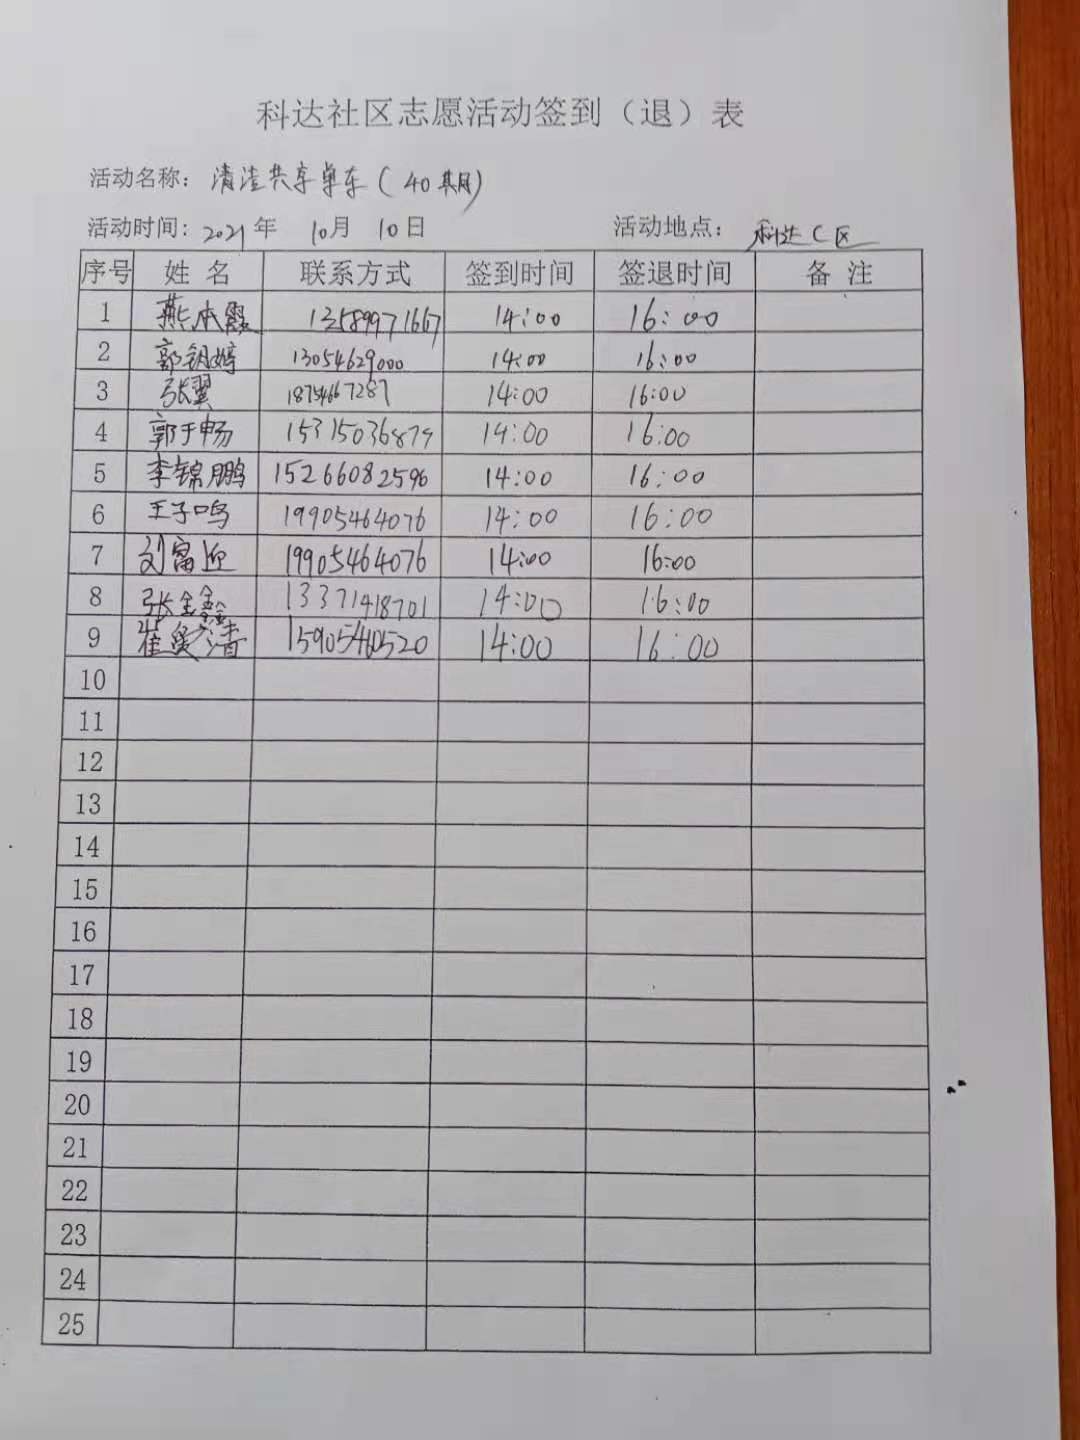 科达社区志愿活动签到（退）表
活动名称：清洁共享单车（40期）
活动时间：2021年 10月 10日 活动地点：科达C区
序号 姓名 联系方式 签到时间 签退时间 备注
1 燕本霞 13589971667 14:00 16:00
2 郭钥婷 13054629000 14:00 16:00
3 张翼 18754667287 14:00 16:00
4 郭于畅 15315036879 14:00 16:00
5 李锦鹏 15266082596 14:00 16:00
6 王子鸣 19905464076 14:00 16:00
7 刘富迎 19905464076 14:00 16:00
8 张鑫鑫 13371418701 14:00 16:00
9 崔 清 15905460520 14:00 16:00
10
11
12
13
14
15
16
17
18
19
20
21
22
23
24
25